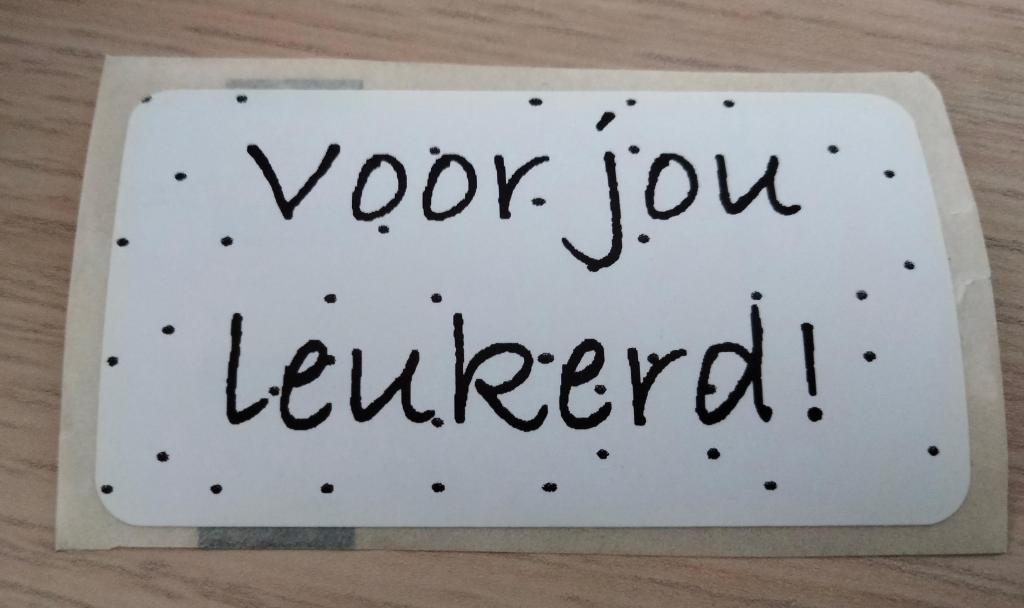 voor jou
leukerd!